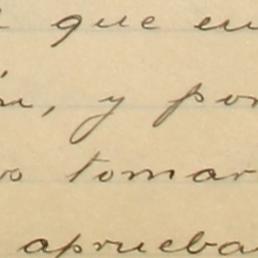 que en
, y por
tomar
aprueba